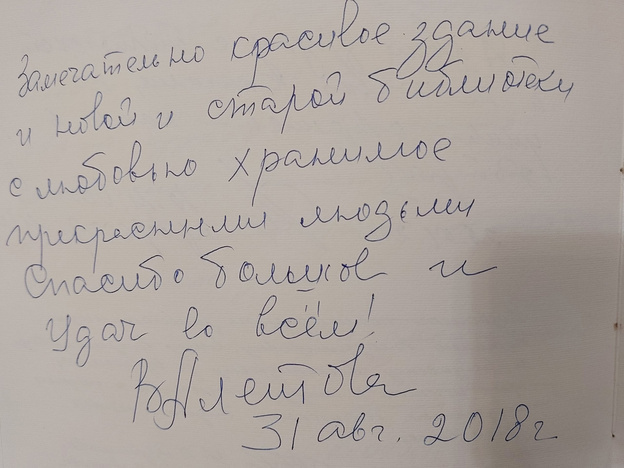 Замечательно красивое здание
и новой и старой библиотеки
с любовью хранимое
прекрасными людьми
Спасибо большое и
Удач во всём!
31 авг. 2018г